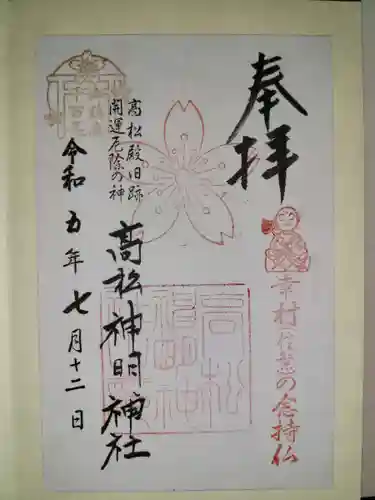 奉拝
幸村信慰の念持仏
高松殿旧跡
開運厄除の神
高松神明神社
高松
神明
令和五年七月十二日